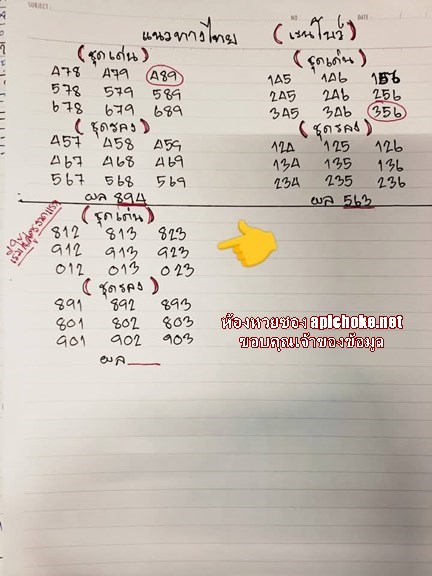 SUBJECT NO DATE
แนวทางไทย (เรนโบว์)
(ชุดเด่น)
478 479 489
578 579 589
678 679 689
(ชุดรอง)
457 458 459
467 468 469
567 568 569
ผล 894
(ชุดเด่น)
145 146 156
245 246 256
345 346 356
(ชุดรอง)
124 125 126
134 135 136
234 235 236
ผล 563
(ชุดเด่น)
812 813 823
912 913 923
012 013 023
(ชุดรอง)
891 892 893
801 802 803
901 902 903
ผล
ห้องหวยซอง apichoke.net
ขอบคุณเจ้าของข้อมูล